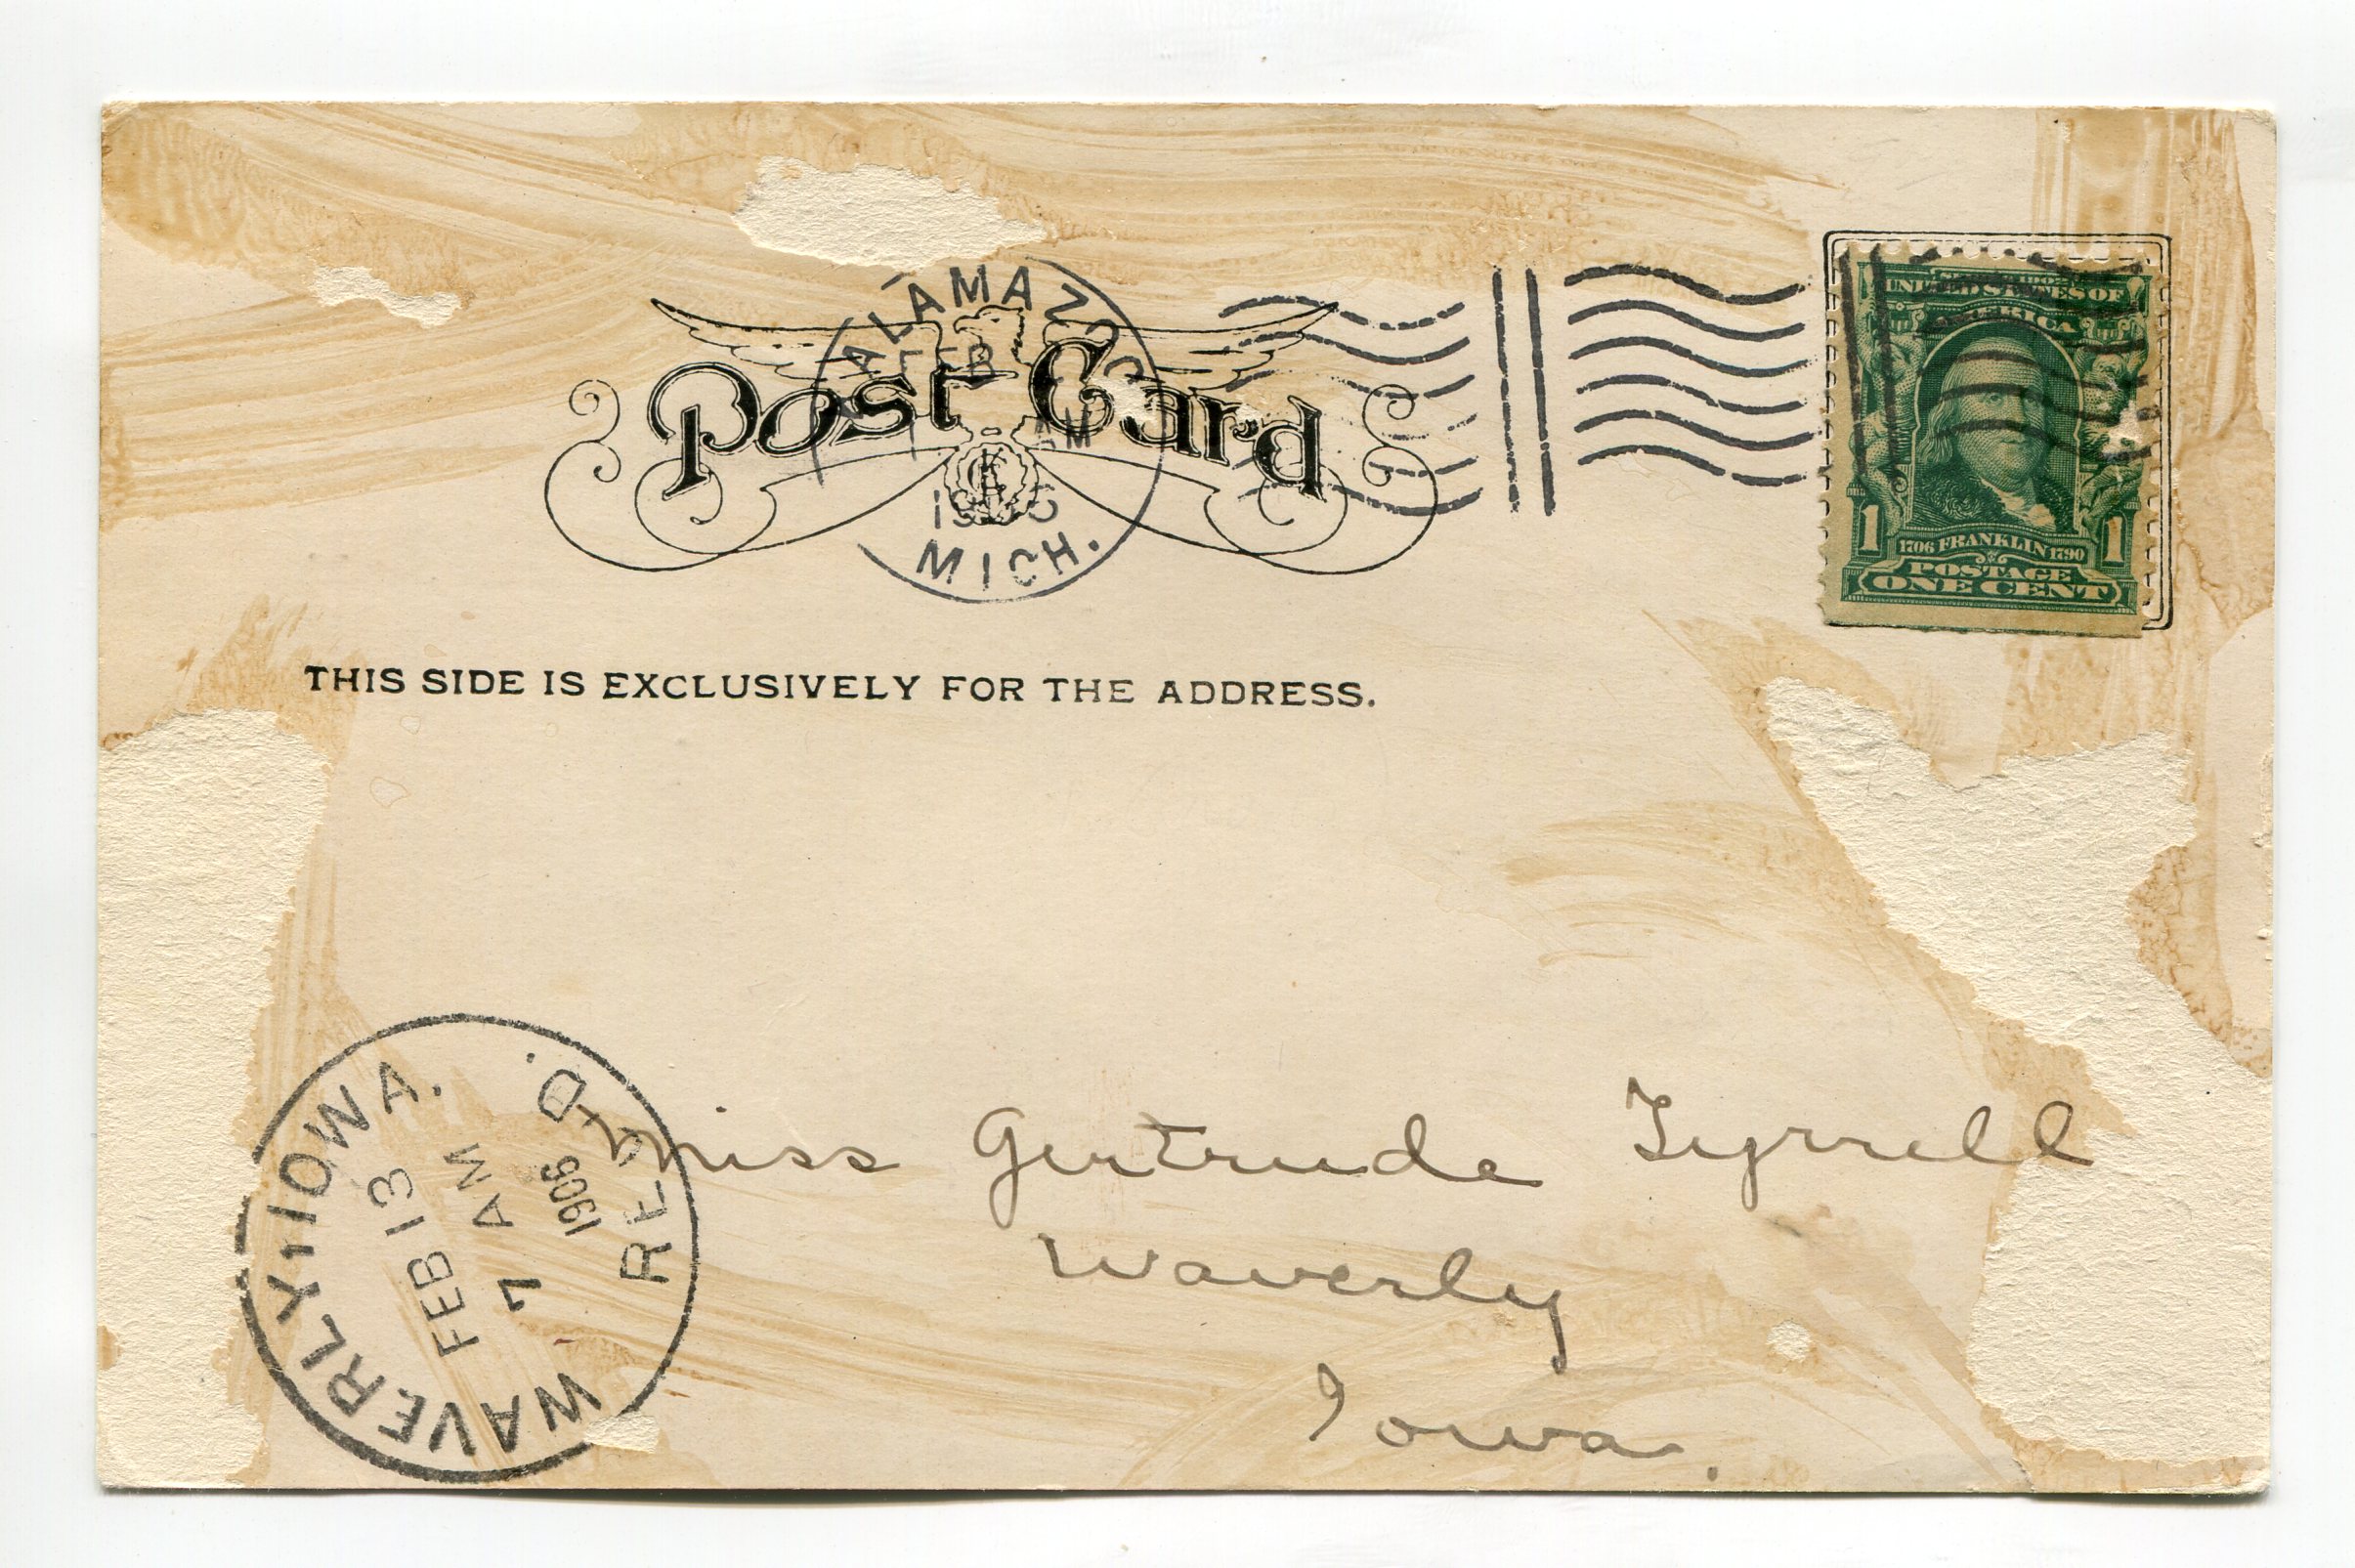 Post Card
KALAMAZOO
FEB
AM
MICH.
SERIES 1902
UNITED STATES OF
AMERICA
1 1
1706 FRANKLIN 1790
POSTAGE
ONE CENT
THIS SIDE IS EXCLUSIVELY FOR THE ADDRESS.
WAVERLY, IOWA.
FEB 13
7 AM
1906
REC'D.
Miss Gertrude Tyrrell
Waverly
Iowa.